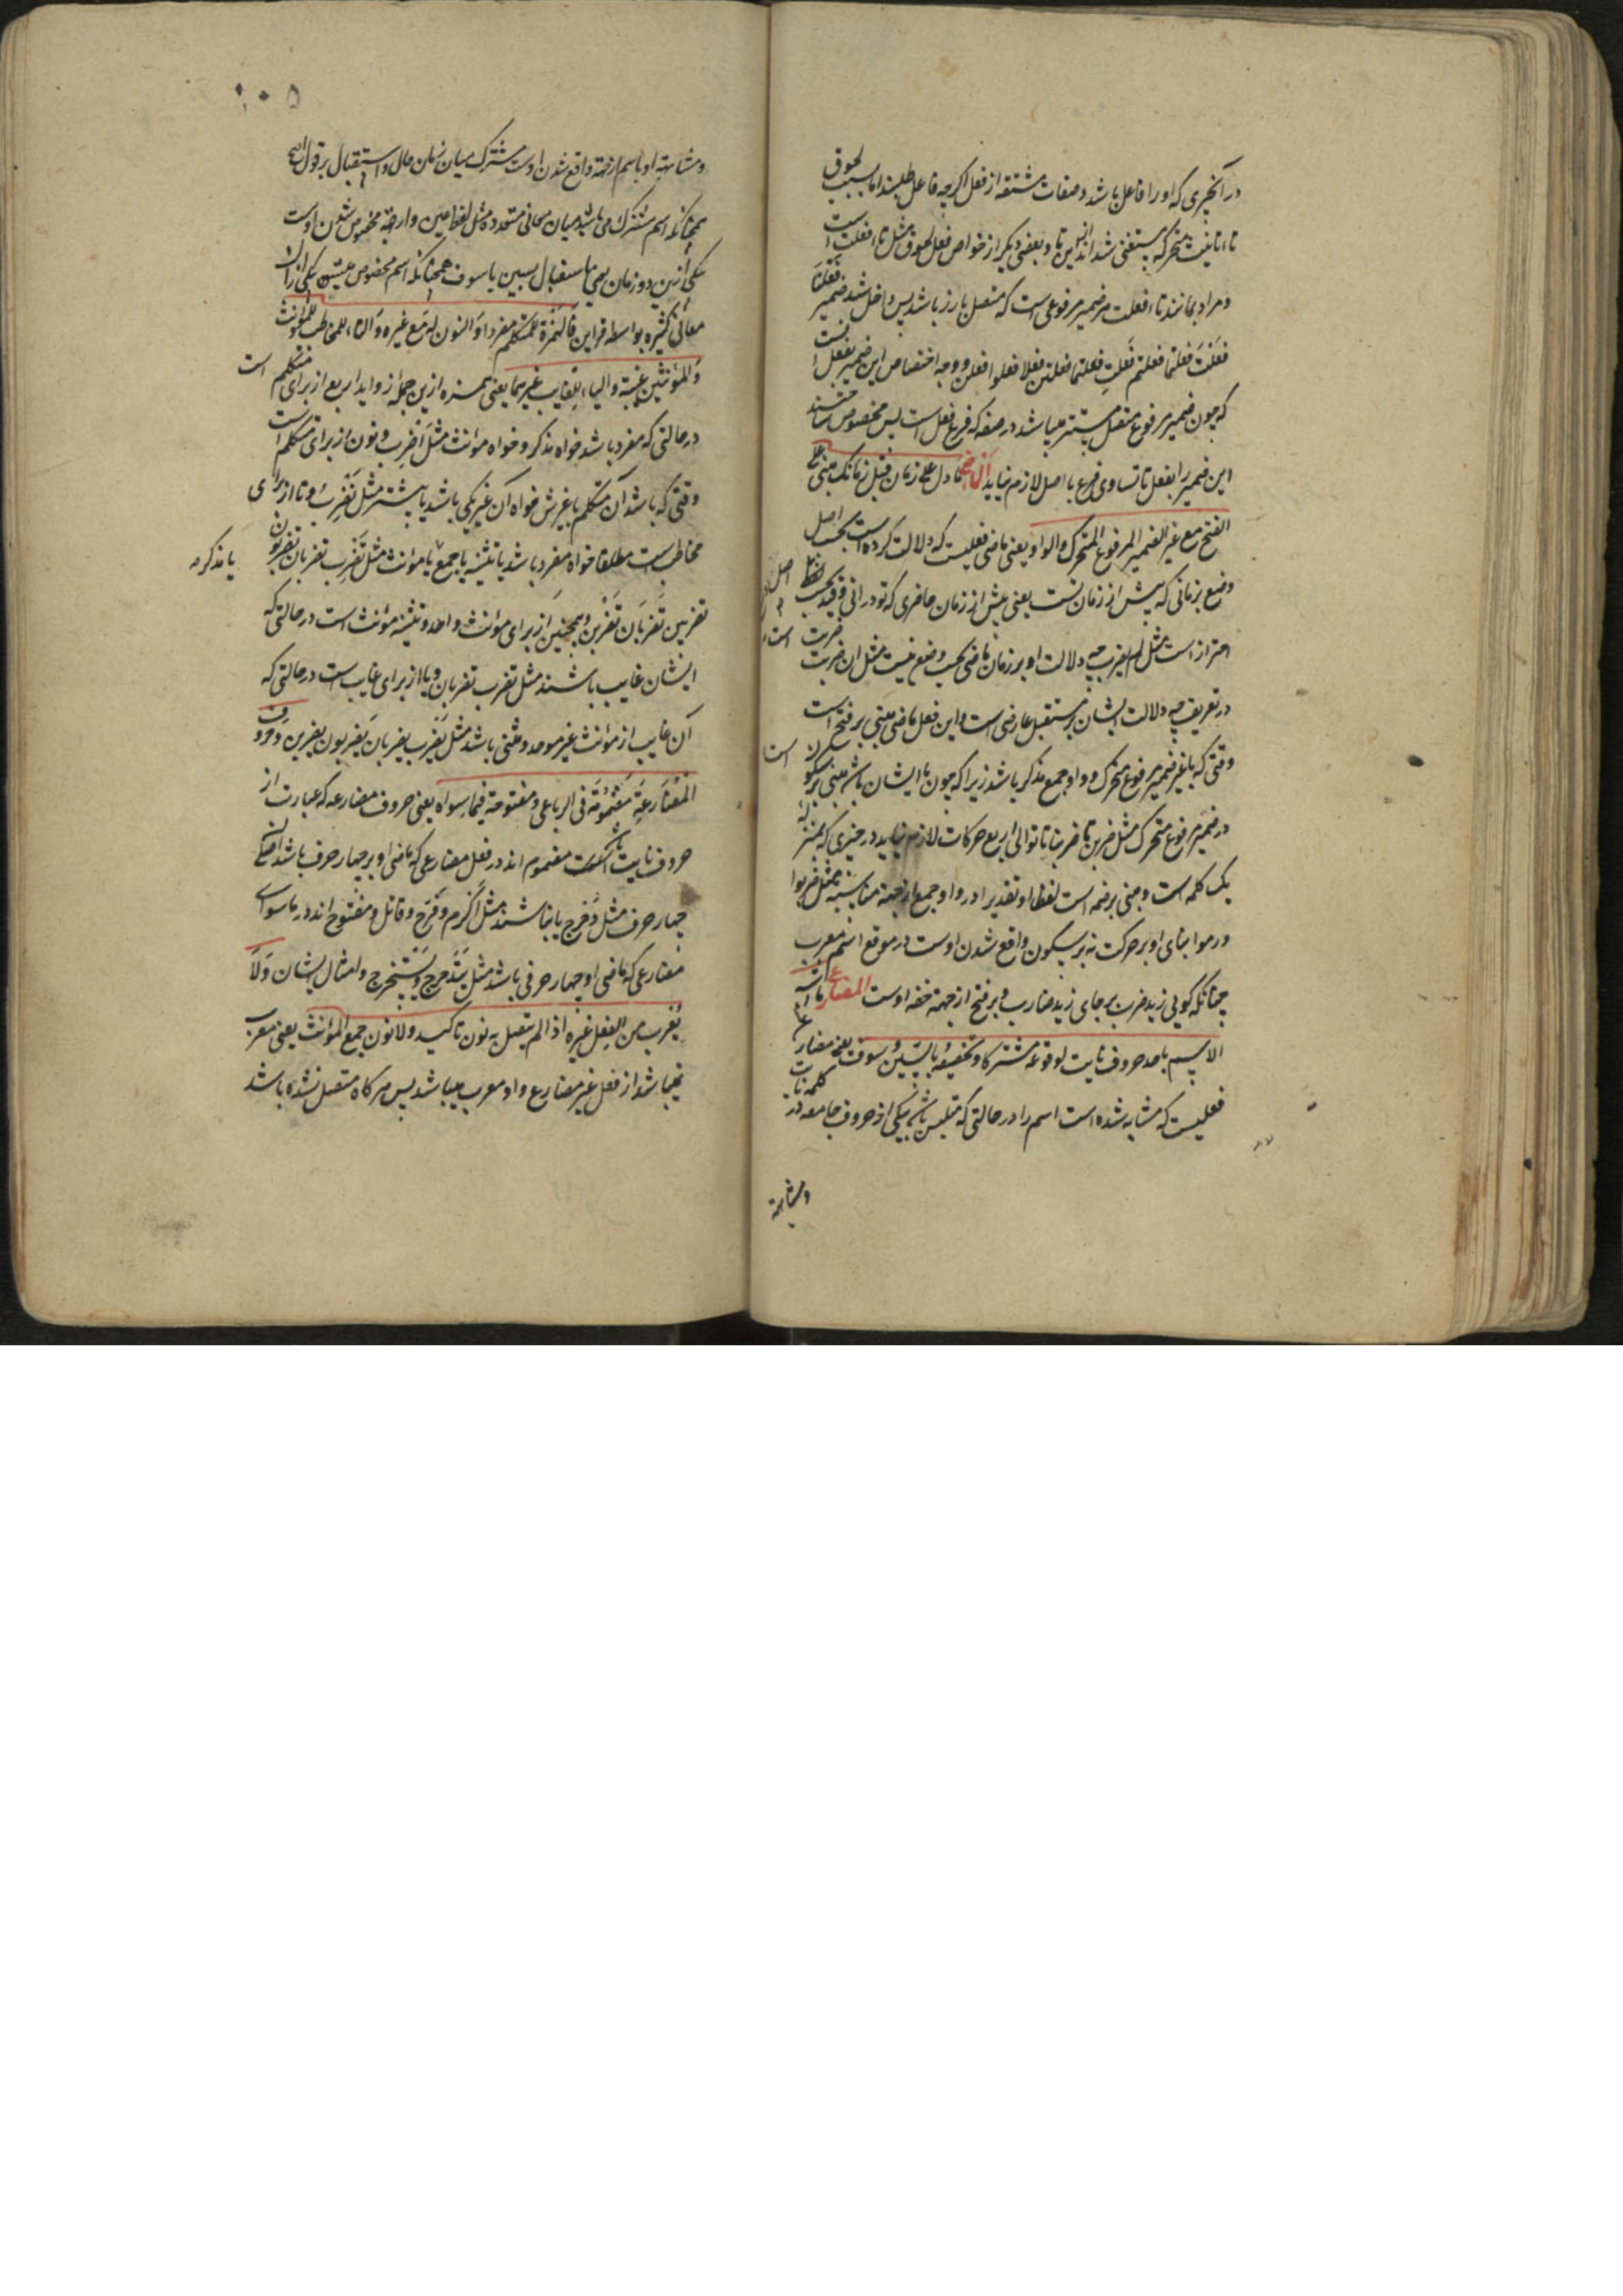 در آنچیزی که او را فاعل باشد و صفات مشتقه از فعل اگرچه فاعل طلبند اما بسبب لحوق
تاء تانیث متحرکه مستغنی شده‌اند ازین تا و بعضی دیگر از خواص فعل لحوق مثل تاء فعلت است
و مراد بمانند تاء فعلت هر ضمیر مرفوعی است که متصل بارز باشد پس داخل شد ضمیر فعلنا
فعلت فعلتما فعلتم فعلت فعلتما فعلتن فعلا فعلوا فعلن و وجه اختصاص این ضمیر بفعل
که چون ضمیر مرفوع متصل مستتر میباشد در صفه که فرع فعل است پس مخصوص ساختند
این ضمیر را بفعل تا تساوی فرع با اصل لازم نیاید الماضی ما دل علی زمان قبل زمانک مبنی علی
الفتح مع غیر الضمیر المرفوع المتحرک والواو یعنی ماضی فعلیست که دلالت کرده است بحسب اصل
وضع بزمانی که پیش از زمان تست یعنی پیش از زمان حاضری که تو در انی و قید بحسب
احتراز است مثل لم یضرب چه دلالت او بر زمان ماضی بحسب وضع نیست مثل ان ضربت ضربت
در تعریف چه دلالت ایشان بر مستقبل عارضی است و این فعل ماضی مبنی بر فتح است
وقتی که با غیر ضمیر مرفوع متحرک و واو جمع مذکر باشد زیرا که چون با ایشان باشد مبنی بر سکون است
در ضمیر مرفوع متحرک مثل ضربن تا ضربنا تا توالی اربع حرکات لازم نیاید در چیزی که بمنزله
یک کلمه است و مبنی بر ضمه است لفظا او تقدیرا در واو جمع از جهة مناسبة مثل ضربوا
و رموا بنای او بر حرکت نه بر سکون واقع شدن اوست در موقع اسم معرب
چنانکه گویی زید ضرب بر جای زید ضارب و بر فتح از جهة خفه اوست المضارع ما اشبه
الاسم باحد حروف نایت لوقوعه مشترکا و تخصیصه بالسین و سوف یعنی مضارع
فعلیست که مشابه شده است اسم را در حالتی که متلبس باشد بیکی از حروف جامعه در کلمه نایت
و مشابهة
و مشابهة او باسم از جهة واقع شدن اوست مشترک میان زمان حال و استقبال بر قول اصح
همچنانکه اسم مشترک می باشد میان معانی متعدده مثل لفظ عین و از جهة مخصوص شدن اوست
بیکی ازین دو زمان یعنی باستقبال بسین یا سوف همچنانکه اسم مخصوص میشود بیکی از ان
معانی کثیره بواسطه قراین فالهمزة للمتکلم مفردا والنون له مع غیره والتاء للمخاطب وللمؤنث
والمؤنثین غیبة والیاء للغایب غیرهما یعنی همزه ازین جمله زواید اربع از برای متکلم است
در حالتی که مفرد باشد خواه مذکر و خواه مؤنث مثل اضرب و نون از برای متکلم است
وقتی که باشد آن متکلم با غیرش خواه آن غیر یکی باشد یا بیشتر مثل نضرب و تا از برای
مخاطب است مطلقا خواه مفرد باشد یا تثنیه یا جمع یا مؤنث مثل تضرب تضربان تضربون یا مذکر
تضربین تضربان تضربن و همچنین از برای مؤنث واحد و تثنیه مؤنث است در حالتی که
ایشان غایب باشند مثل تضرب تضربان و یا از برای غایب است در حالتی که
آن غایب از مؤنث غیر موحد و مثنی باشد مثل یضرب یضربان یضربون یضربن و حروف
المضارعة مضمومة فی الرباعی و مفتوحة فیما سواه یعنی حروف مضارعه که عبارت از
حروف نایت باشد مضموم اند در فعل مضارعی که ماضی او بر چهار حرف باشد
چهار حرف مثل دحرج یا نباشند مثل اکرم و فرح و قاتل و مفتوح اند در ماسوای
مضارعی که ماضی او چهار حرفی باشد مثل یتدحرج و یستخرج و امثال ایشان ولا
یعرب من الفعل غیره اذا لم یتصل به نون تاکید ولا نون جمع المؤنث یعنی معرب
نمیباشد از فعل غیر مضارع و او معرب میباشد پس هر کاه متصل نشده باشد